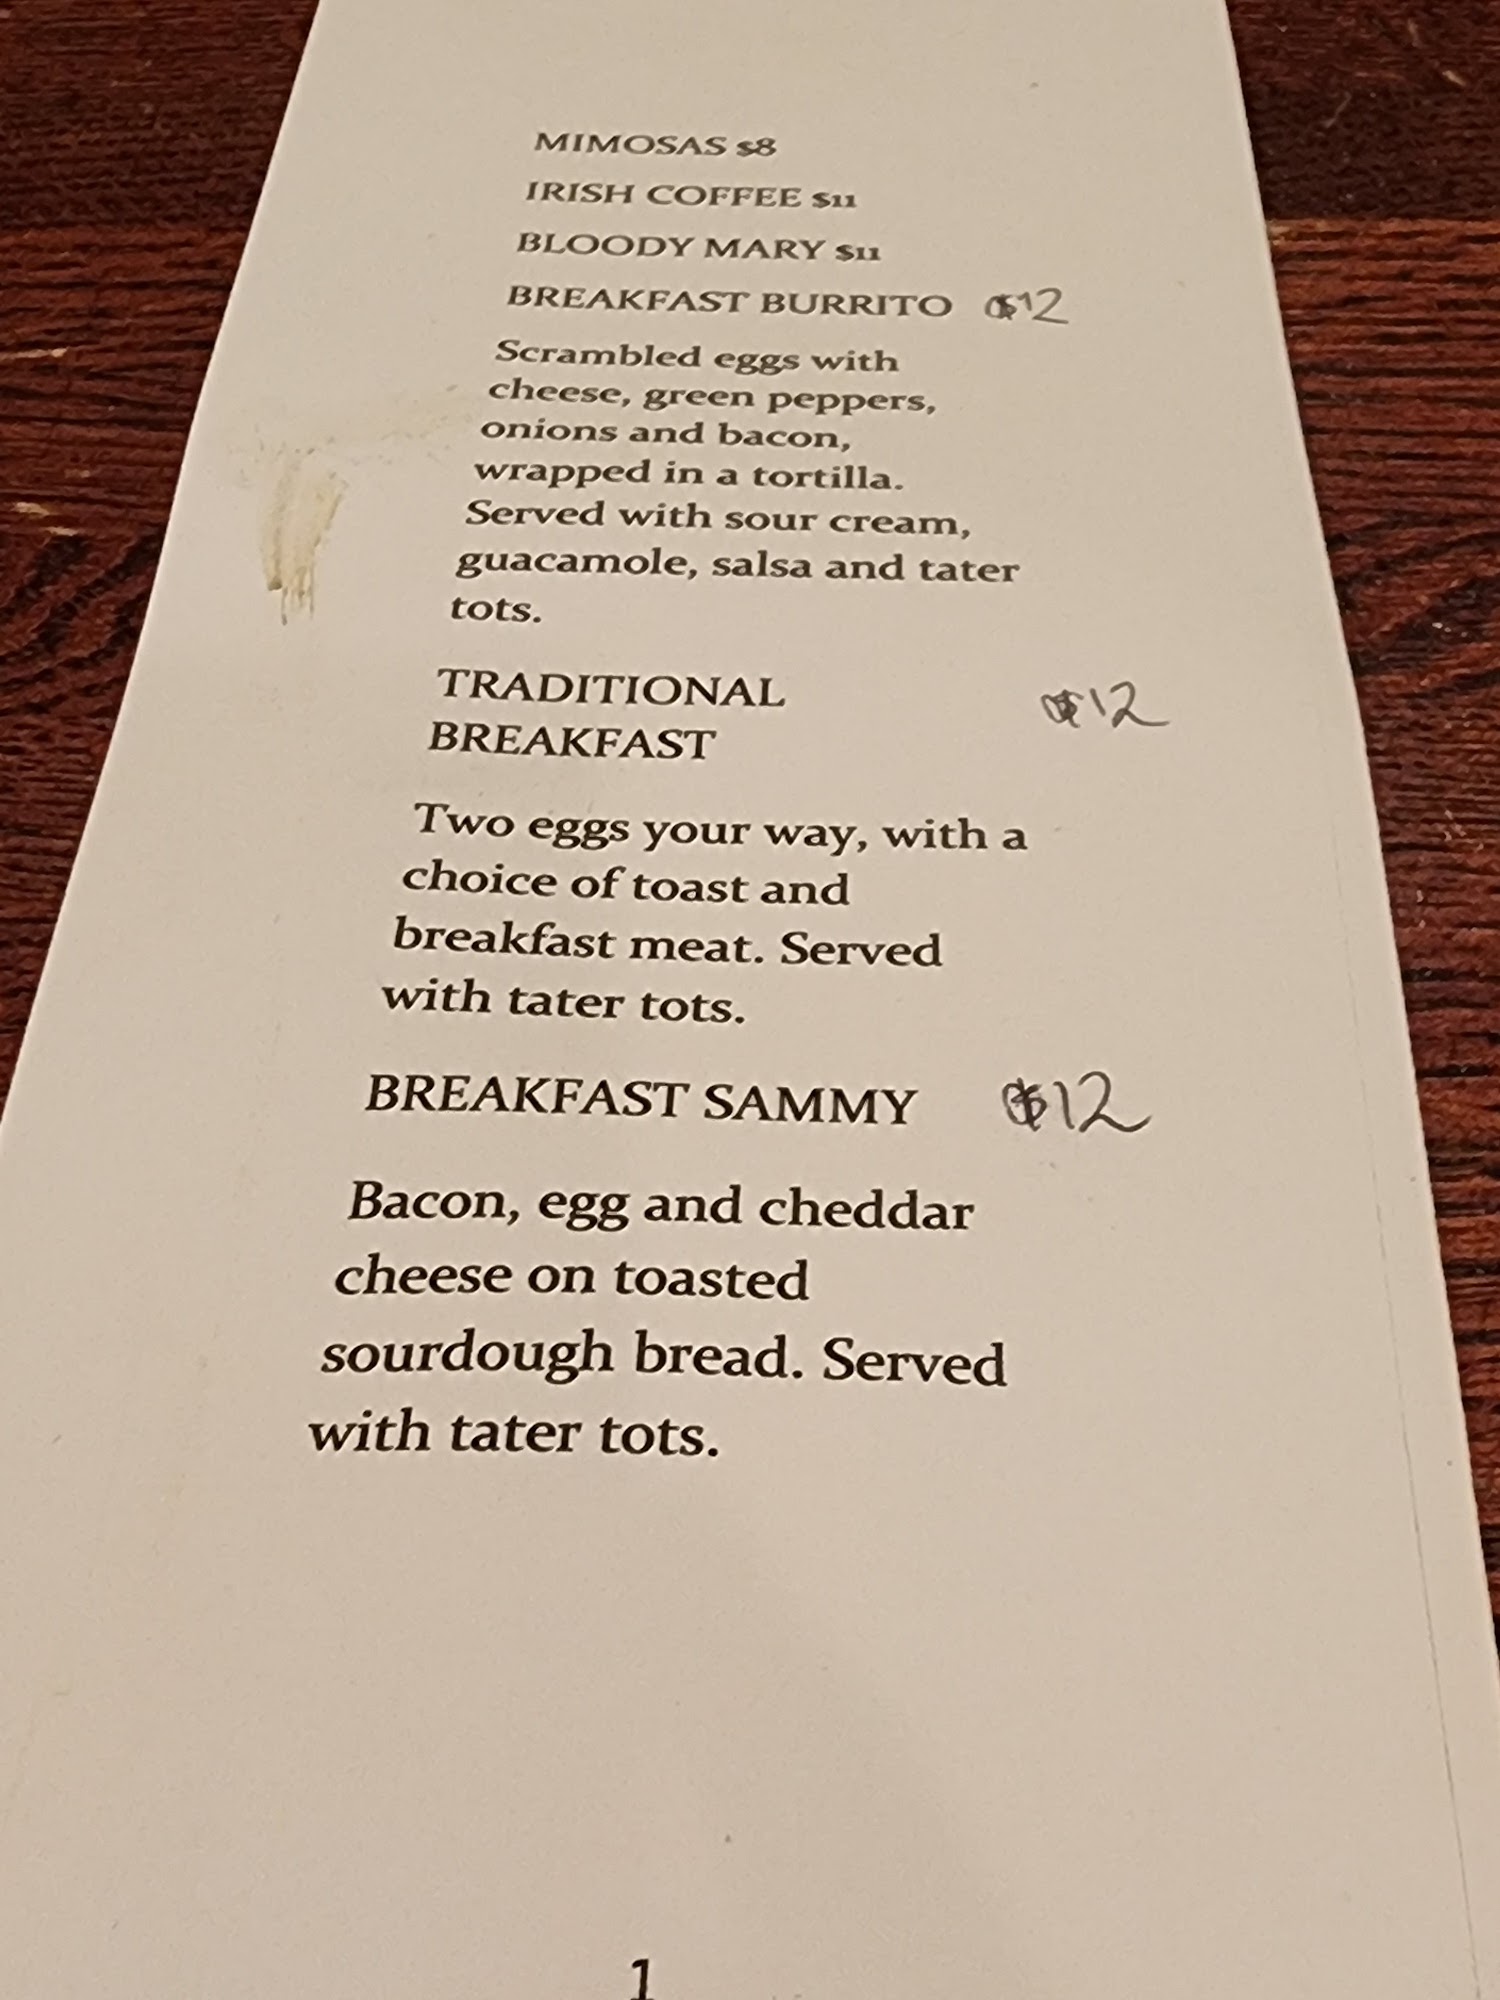 MIMOSAS $8
IRISH COFFEE $11
BLOODY MARY $11
BREAKFAST BURRITO $12
Scrambled eggs with
cheese, green peppers,
onions and bacon,
wrapped in a tortilla.
Served with sour cream,
guacamole, salsa and tater
tots.
TRADITIONAL $12
BREAKFAST
Two eggs your way, with a
choice of toast and
breakfast meat. Served
with tater tots.
BREAKFAST SAMMY $12
Bacon, egg and cheddar
cheese on toasted
sourdough bread. Served
with tater tots.
1